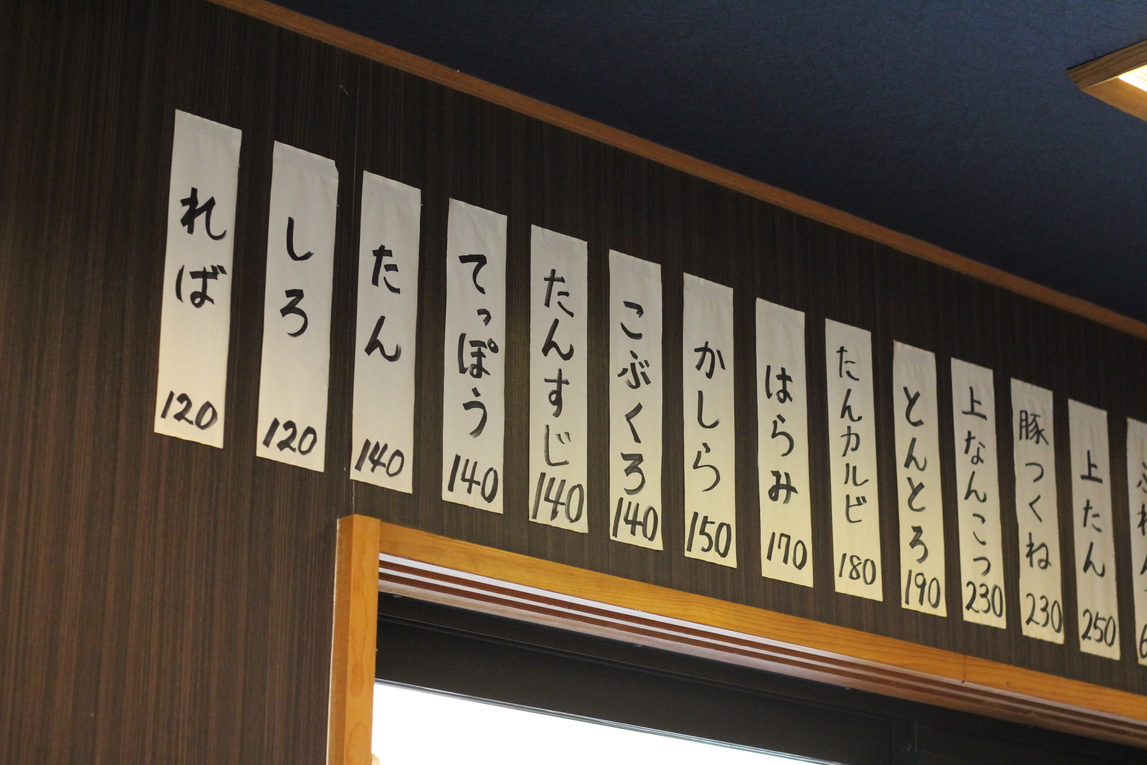 れば
120
しろ
120
たん
140
てっぽう
140
たんすじ
140
こぶくろ
140
かしら
150
はらみ
170
たんカルビ
180
とんとろ
190
上なんこつ
230
豚つくね
230
上たん
250